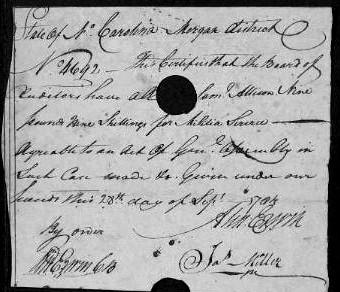 State of No Carolina Morgan district
No 4692 — This Certifies that the Board of
Auditors have all Sam.l Allison Nine
pounds Nine Shillings for Militia Service —
Agreeable to an Act Of Gen.l Assembly in
Such Case made &c. Given under our
hands this 28th day of Sept.
Alexr Erwin
By order
Erwin Clk
Jas. Miller